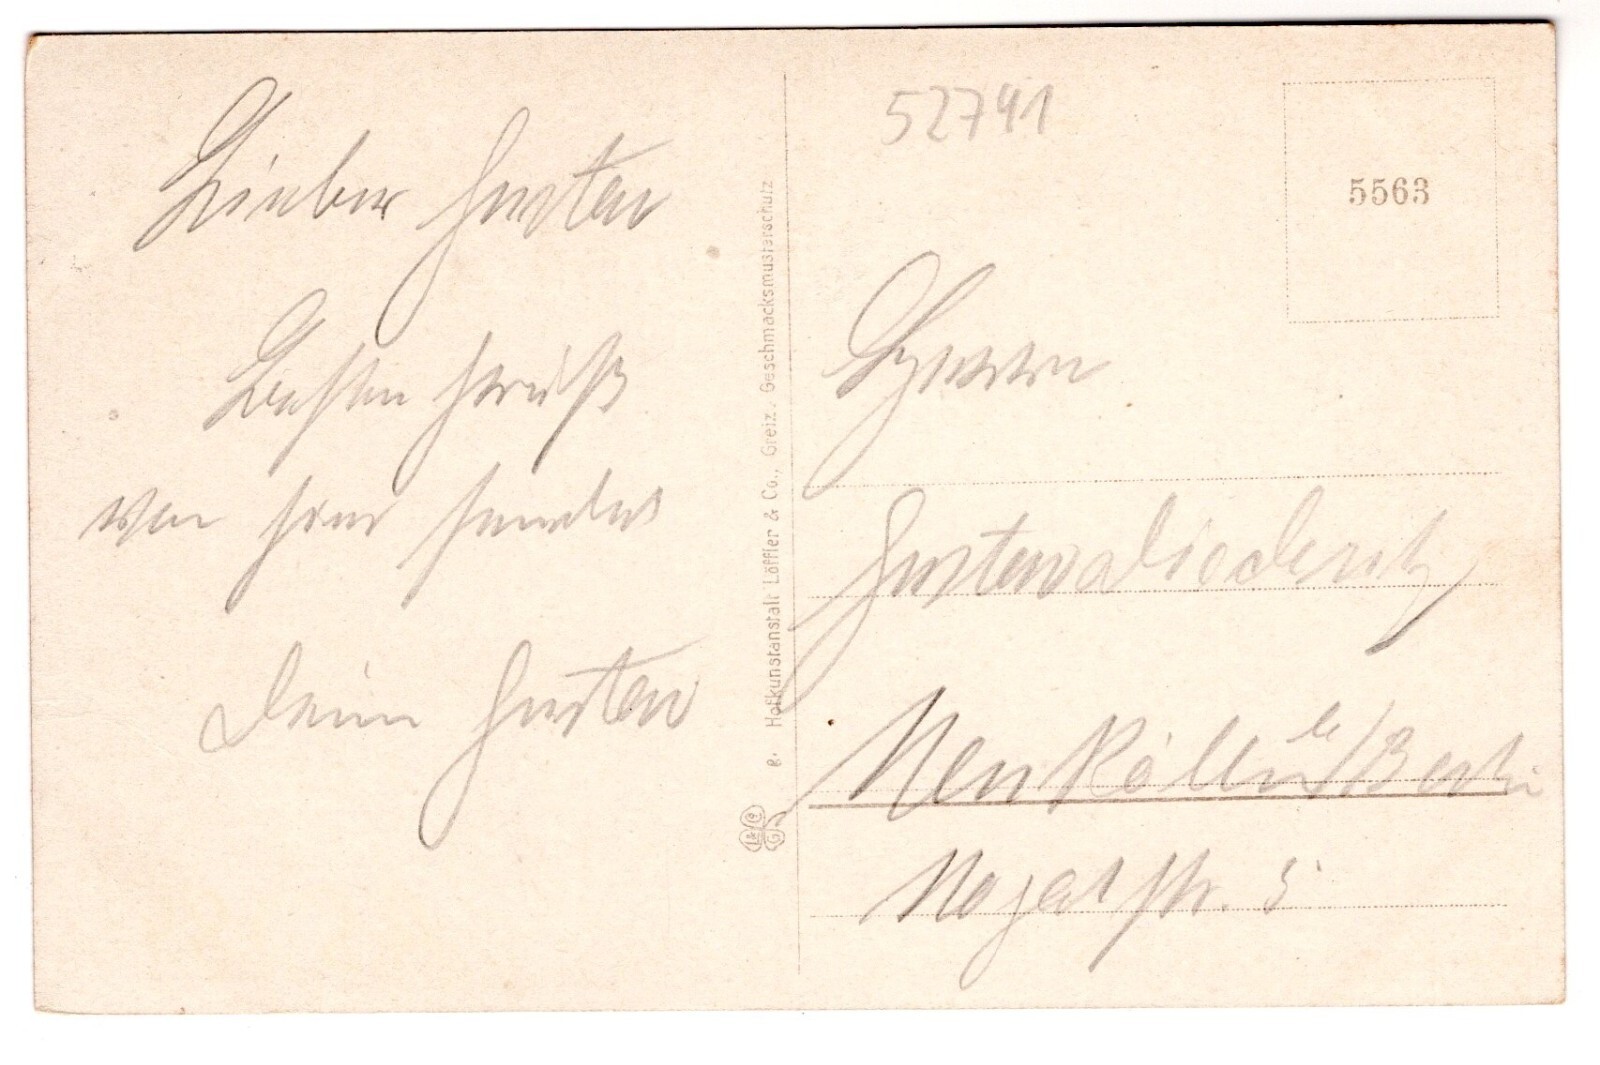 Lieber Gustav
Besten Gruß
von hier sendet
Dein Gustav
e. Hofkunstanstalt Löffler & Co., Greiz. Geschmacksmusterschutz
L&Co G
52741
5563
Herrn
Gustav Diederitz
Neukölln b/Berlin
Nogatstr. 5